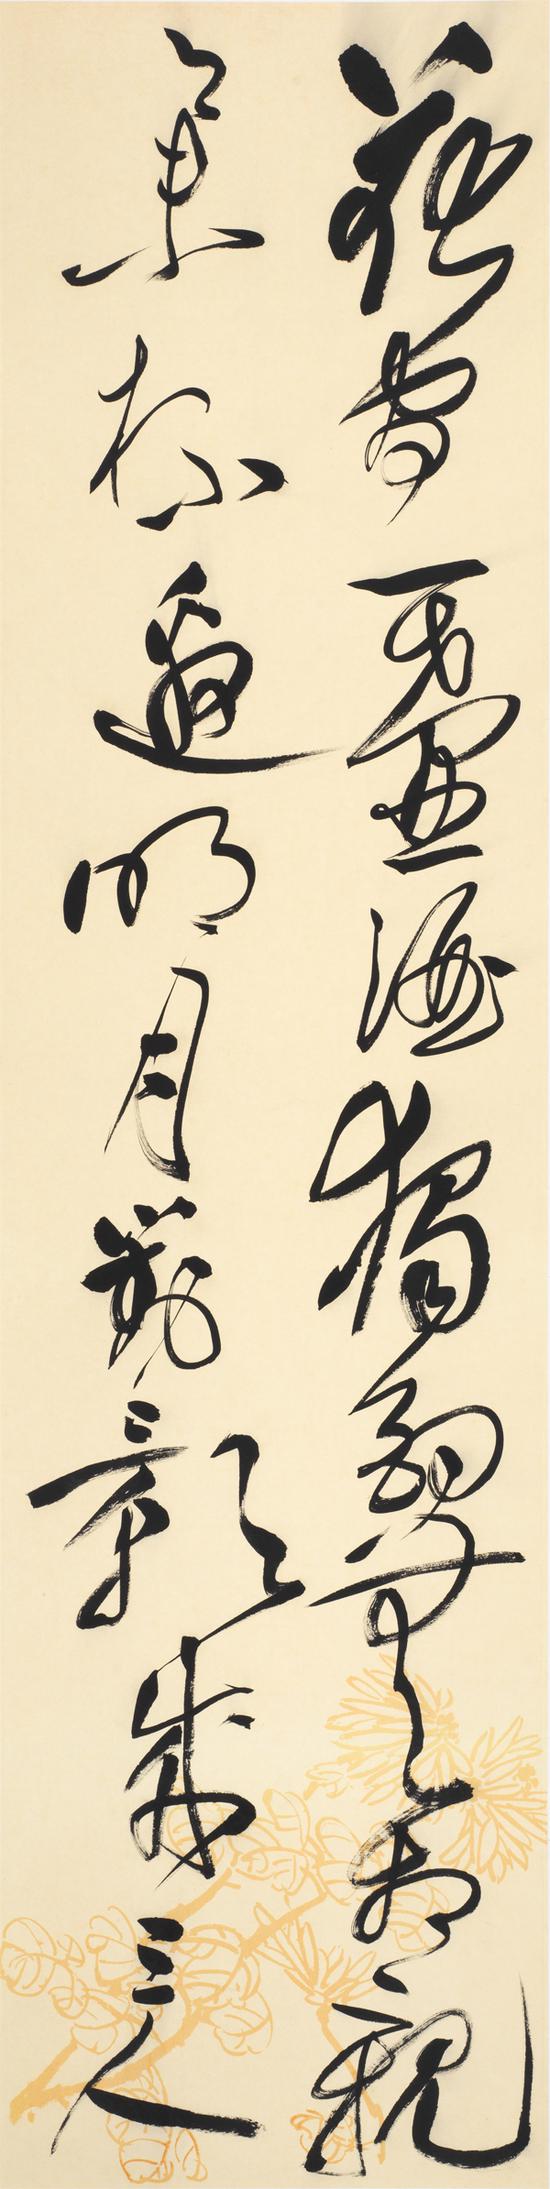 花間一壺酒獨酌無相親
舉杯邀明月對影成三人